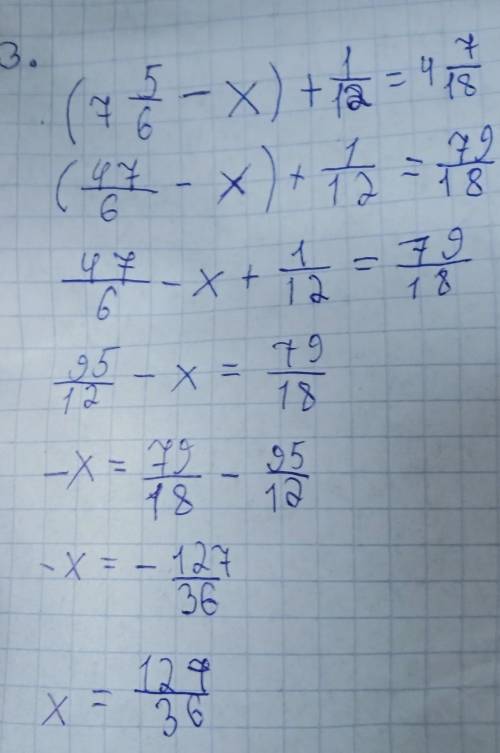 3.
(7 5/6 - x) + 1/12 = 4 7/18
(47/6 - x) + 1/12 = 79/18
47/6 - x + 1/12 = 79/18
95/12 - x = 79/18
-x = 79/18 - 95/12
-x = - 127/36
x = 127/36